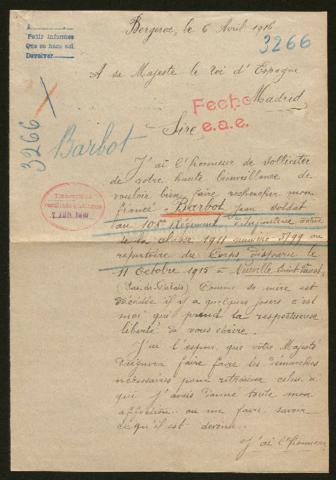 Bergerac, le 6 Avril 1916
Pedir informes
Que se hace así
Devolver
3266
A sa Majesté le roi d'Espagne
Madrid
Fecho
e.a.e.
Sire
3266
Barbot
J'ai l'honneur de solliciter
de votre haute bienveillance de
vouloir bien faire rechercher mon
fiancé Barbot Jean soldat
au 106e Régiment d'Infanterie
de la classe 1911 numéro 5799 au
répertoire du Corps disparu le
11 Octobre 1915 à Neuville Saint Vaast
(Pas-de-Calais) Comme sa mère est
décédée il y a quelques jours c'est
moi qui prend la respectueuse
liberté de vous écrire.
J'ai l'espoir que votre Majesté
daignera faire faire les démarches
nécessaires pour retrouver celui à
qui j'avais donné toute mon
affection ou me faire savoir
ce qu'il est devenu.
J'ai l'honneur